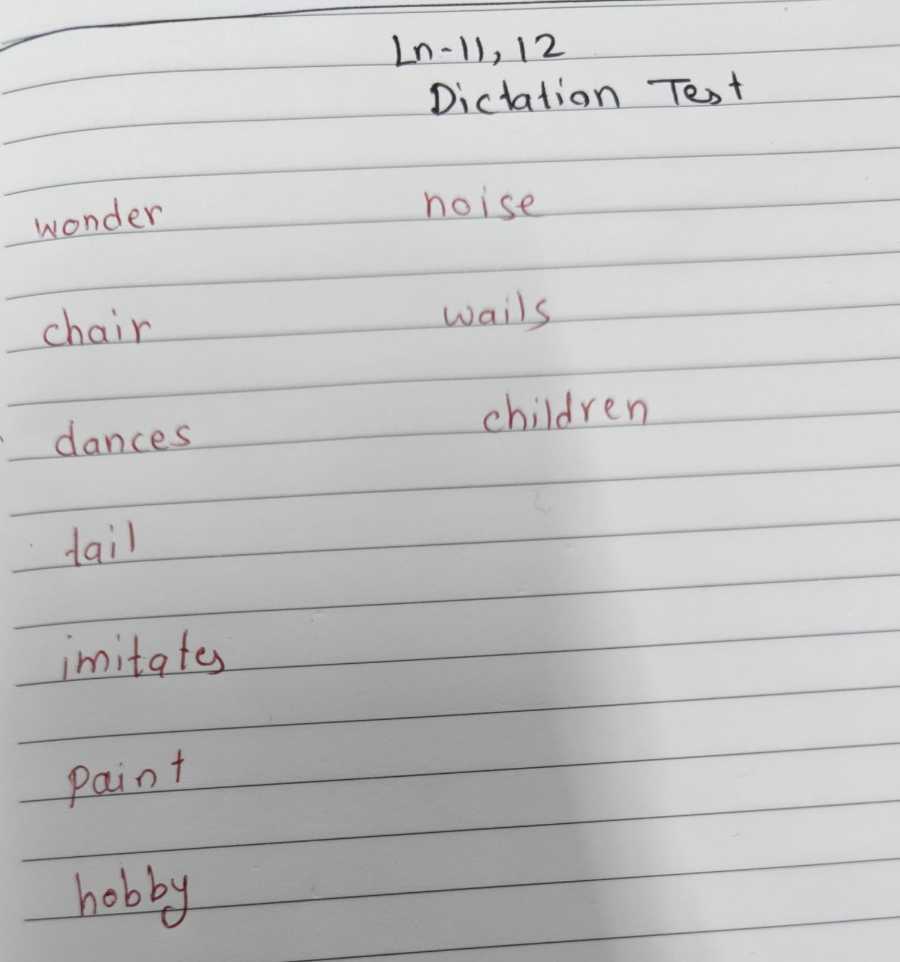 Ln-11, 12
Dictation Test
wonder noise
chair wails
dances children
tail
imitates
paint
hobby